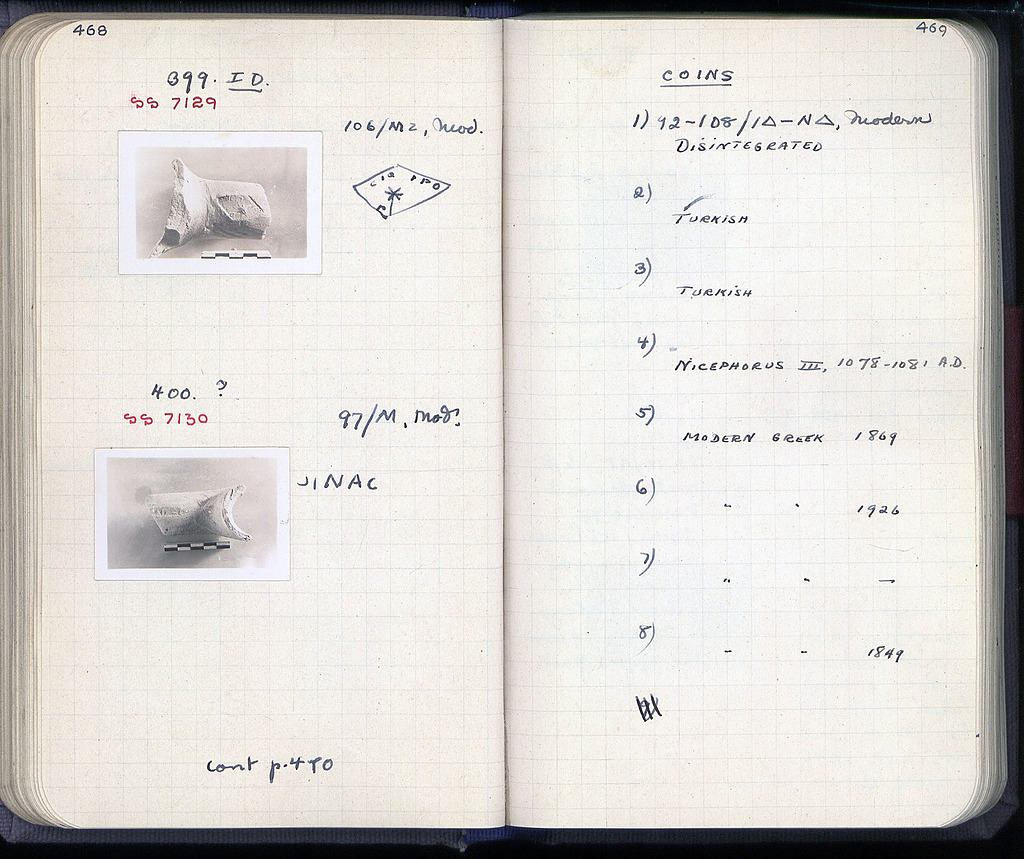 468
399. ID.
SS 7129
106/M2, Mod.
400. ?
SS 7130
97/M, Mod?
JINAC
cont p. 470
469
COINS
1) 92-108/IΔ-NΔ, Modern
DISINTEGRATED
2)
TURKISH
3)
TURKISH
4)
NICEPHORUS III, 1078-1081 A.D.
5)
MODERN GREEK 1869
6)
" " 1926
7)
" " —
8)
" " 1849